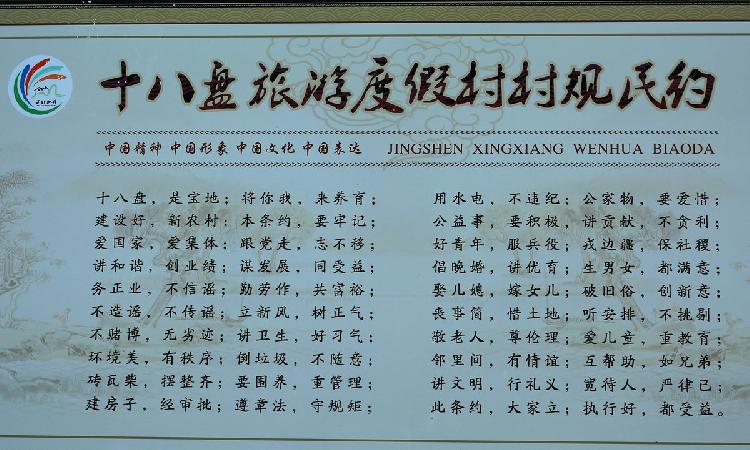 十八盘旅游度假村村规民约
中国精神 中国形象 中国文化 中国表达 JINGSHEN XINGXIANG WENHUA BIAODA
十八盘，是宝地；将你我，来养育；
建设好，新农村；本条约，要牢记；
爱国家，爱集体；跟党走，志不移；
讲和谐，创业绩；谋发展，同受益；
务正业，不信谣；勤劳作，共富裕；
不造谣，不传谣；立新风，树正气；
不赌博，无劣迹；讲卫生，好习气；
环境美，有秩序；倒垃圾，不随意；
砖瓦柴，摆整齐；要圈养，重管理；
建房子，经审批；遵章法，守规矩；
用水电，不违纪；公家物，要爱惜；
公益事，要积极，讲贡献，不贪利；
好青年，服兵役；戍边疆，保社稷；
倡晚婚，讲优育；生男女，都满意；
娶儿媳，嫁女儿；破旧俗，创新意；
丧事简，惜土地；听安排，不挑剔；
敬老人，尊伦理；爱儿童，重教育；
邻里间，有情谊；互帮助，如兄弟；
讲文明，行礼义；宽待人，严律己；
此条约，大家立；执行好，都受益。